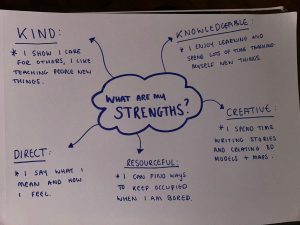 KIND:
* I SHOW I CARE
FOR OTHERS, I LIKE
TEACHING PEOPLE NEW
THINGS.
KNOWLEDGEABLE:
* I ENJOY LEARNING AND
SPEND LOTS OF TIME TEACHING
MYSELF NEW THINGS.
WHAT ARE MY
STRENGTHS?
CREATIVE:
* I SPEND TIME
WRITING STORIES
AND CREATING 3D
MODELS + MAPS.
DIRECT:
* I SAY WHAT I
MEAN AND HOW
I FEEL.
RESOURCEFUL:
* I CAN FIND WAYS
TO KEEP OCCUPIED
WHEN I AM BORED.